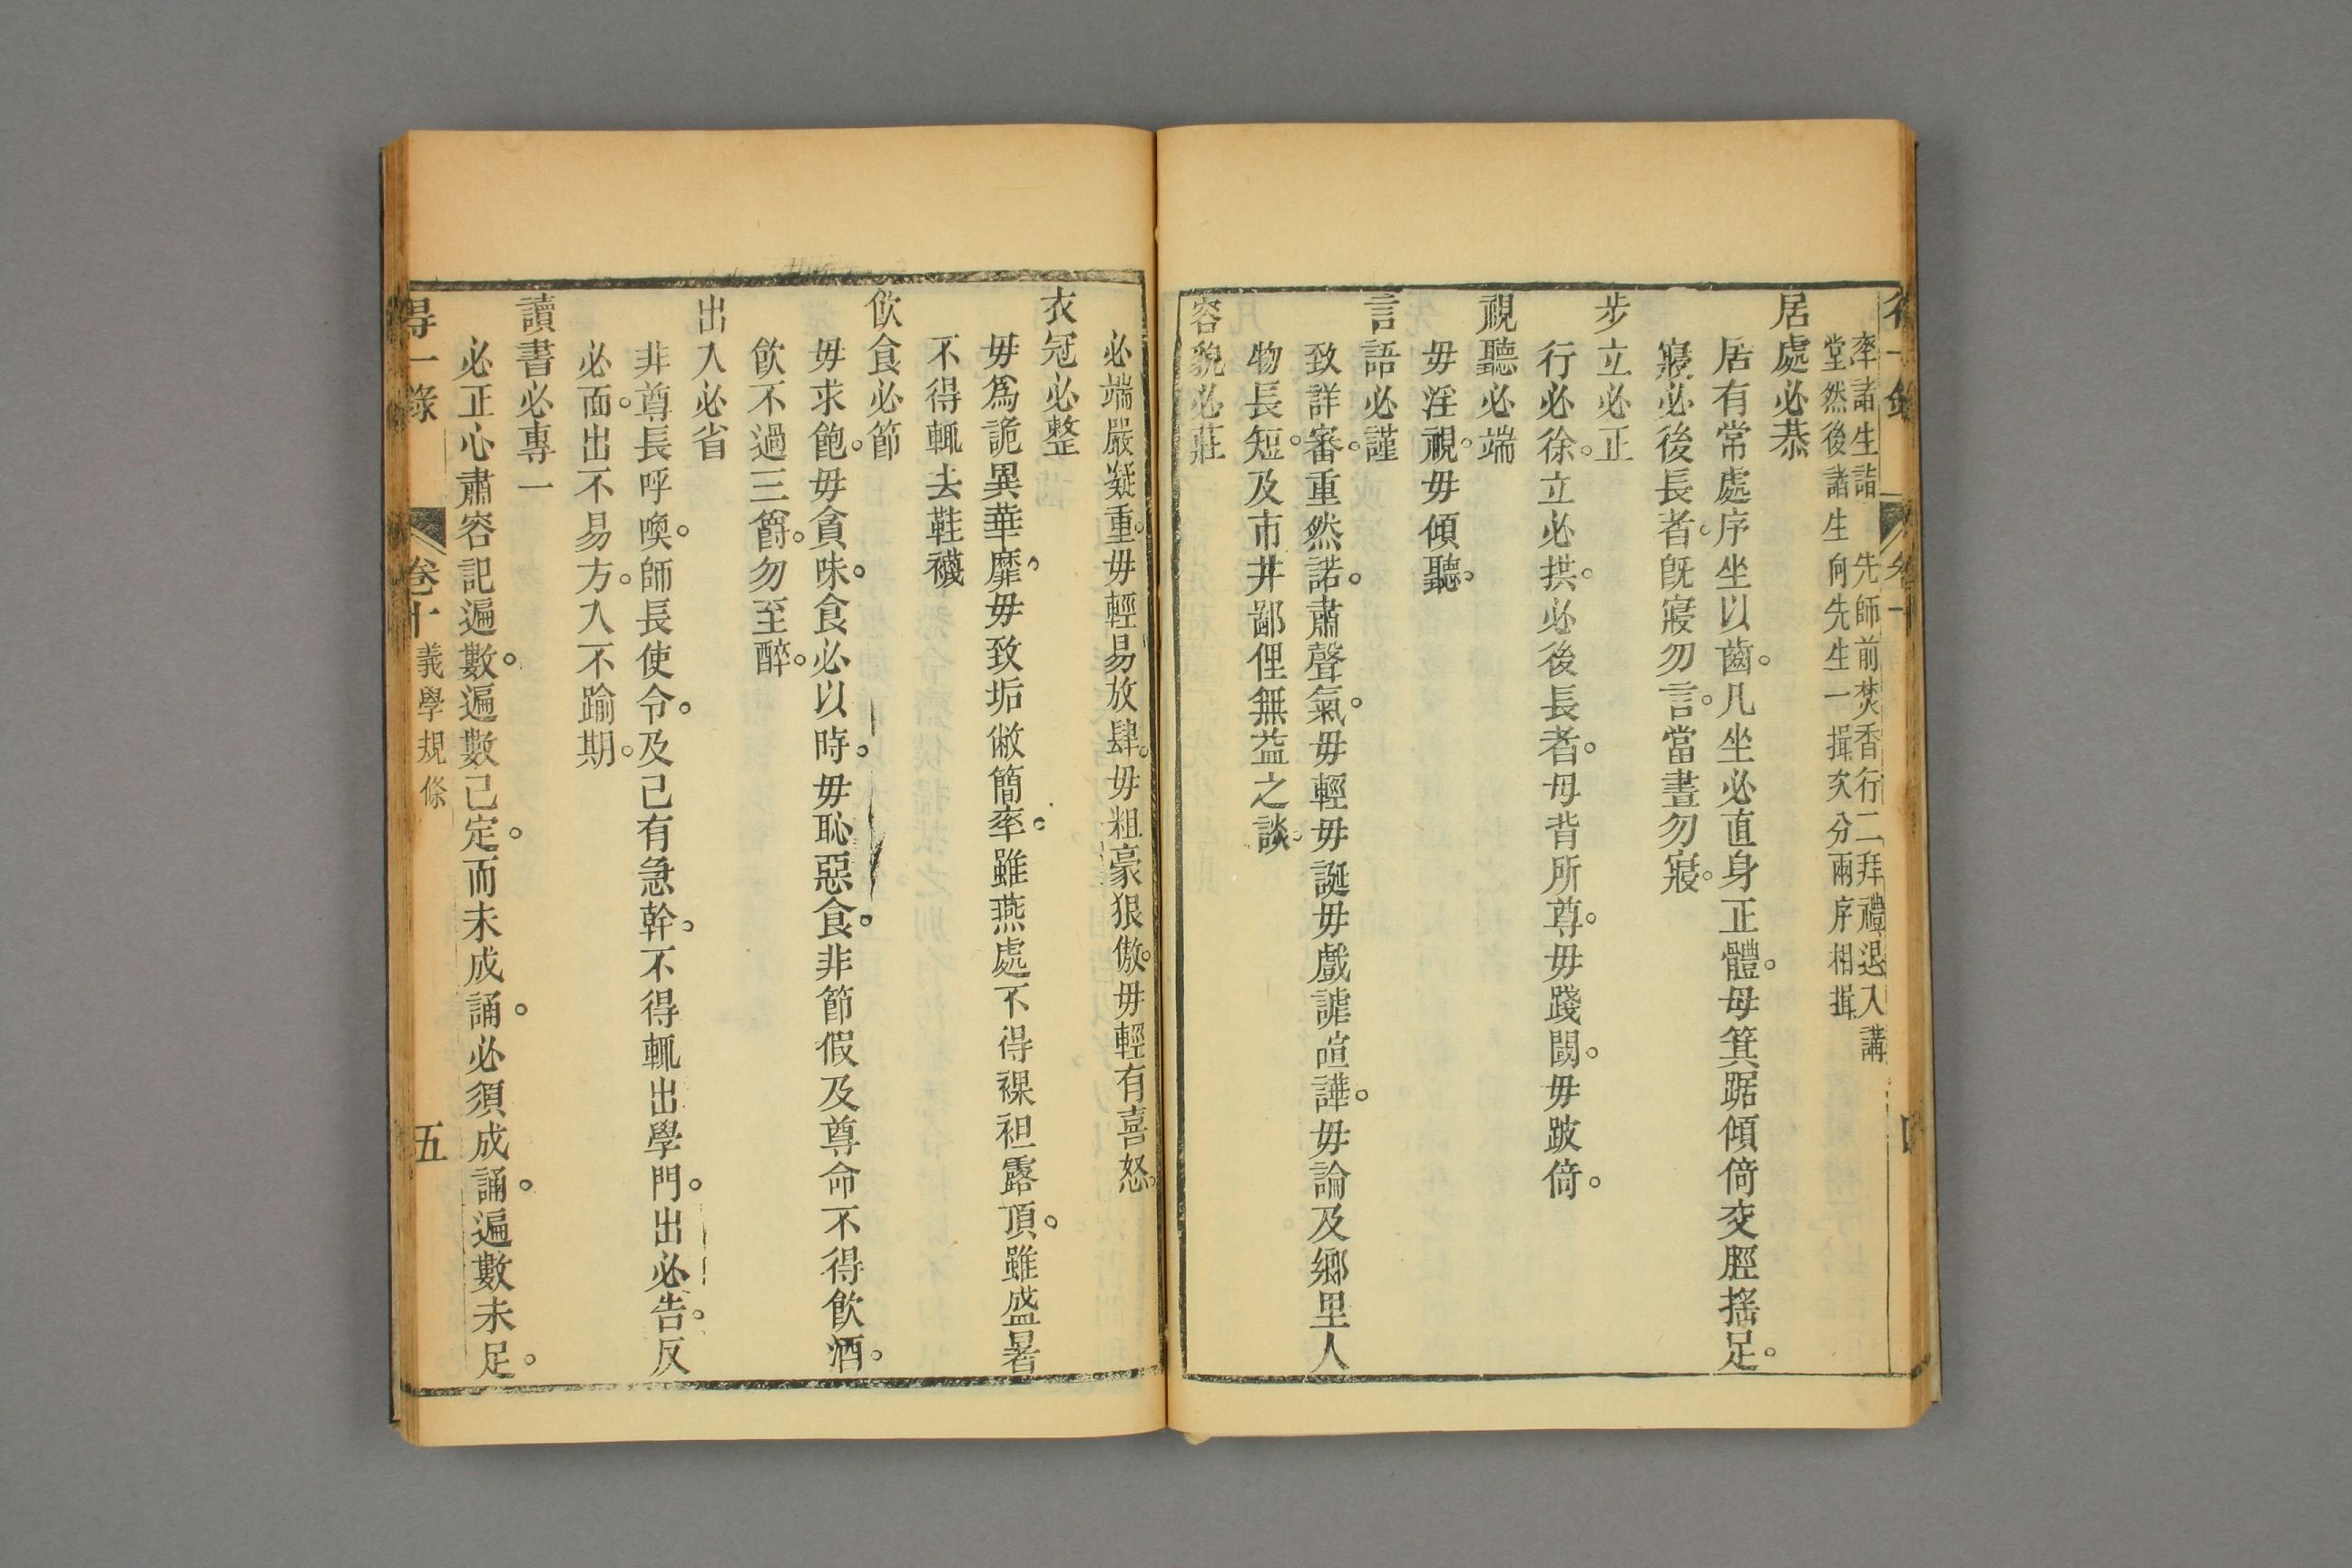 率諸生詣　先師前焚香行二拜禮退入講
堂然後諸生向先生一揖次分兩序相揖
居處必恭
居有常處序坐以齒。凡坐必直身正體。毋箕踞傾倚交脛搖足。
寢必後長者。旣寢勿言。當晝勿寢。
步立必正
行必徐。立必拱。必後長者。毋背所尊。毋踐閾。毋跛倚。
視聽必端
毋淫視。毋傾聽。
言語必謹
致詳審。重然諾。肅聲氣。毋輕毋誕毋戲謔諠譁。毋論及鄉里人
物長短。及市井鄙俚無益之談。
容貌必莊
必端嚴凝重。毋輕易放肆。毋粗豪狠傲。毋輕有喜怒。
衣冠必整
毋爲詭異華靡。毋致垢敝簡率。雖燕處不得裸袒露頂。雖盛暑
不得輒去鞋襪
飮食必節
毋求飽。毋貪味。食必以時。毋恥惡食。非節假及尊命不得飮酒。
飮不過三爵。勿至醉。
出入必省
非尊長呼喚。師長使令。及己有急幹。不得輒出學門。出必告。反
必面。出不易方。入不踰期。
讀書必專一
必正心肅容記遍數。遍數已定。而未成誦。必須成誦。遍數未足。
得一錄　卷十　義學規條　五